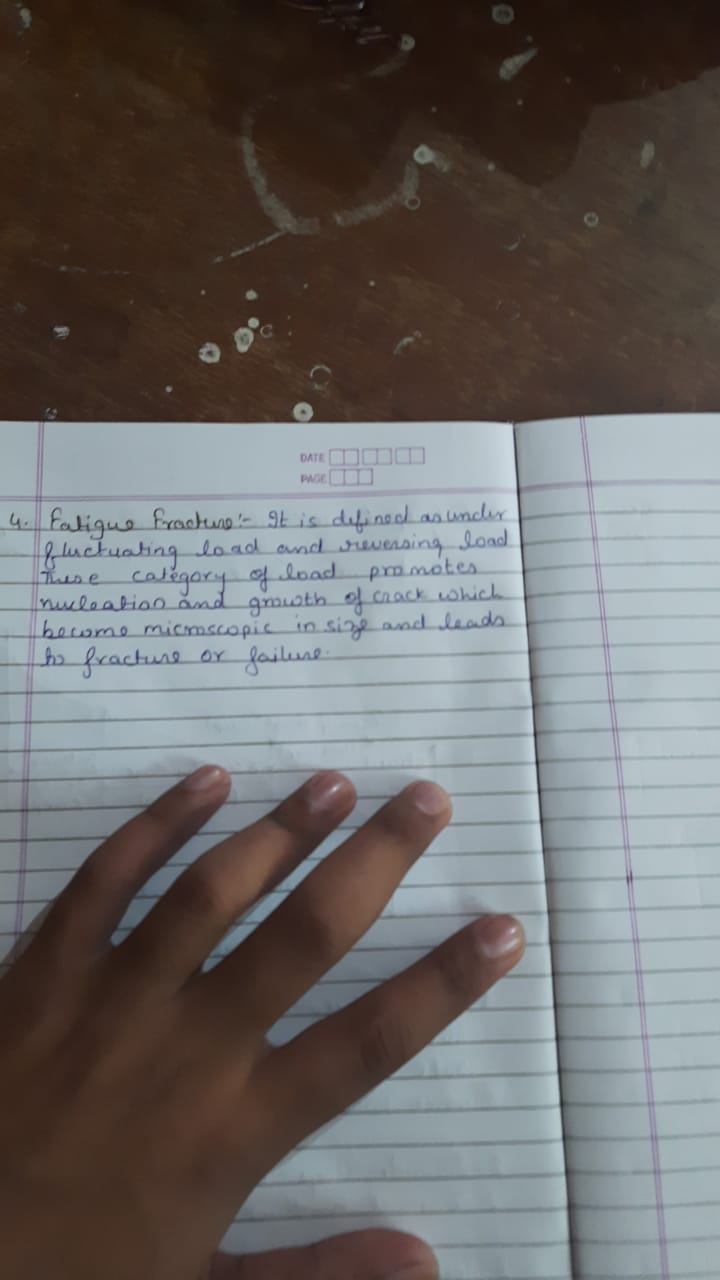 DATE
PAGE
4. Fatigue Fracture:- It is defined as under
fluctuating load and reversing load
These category of load promotes
nucleation and growth of crack which
become microscopic in size and leads
to fracture or failure.